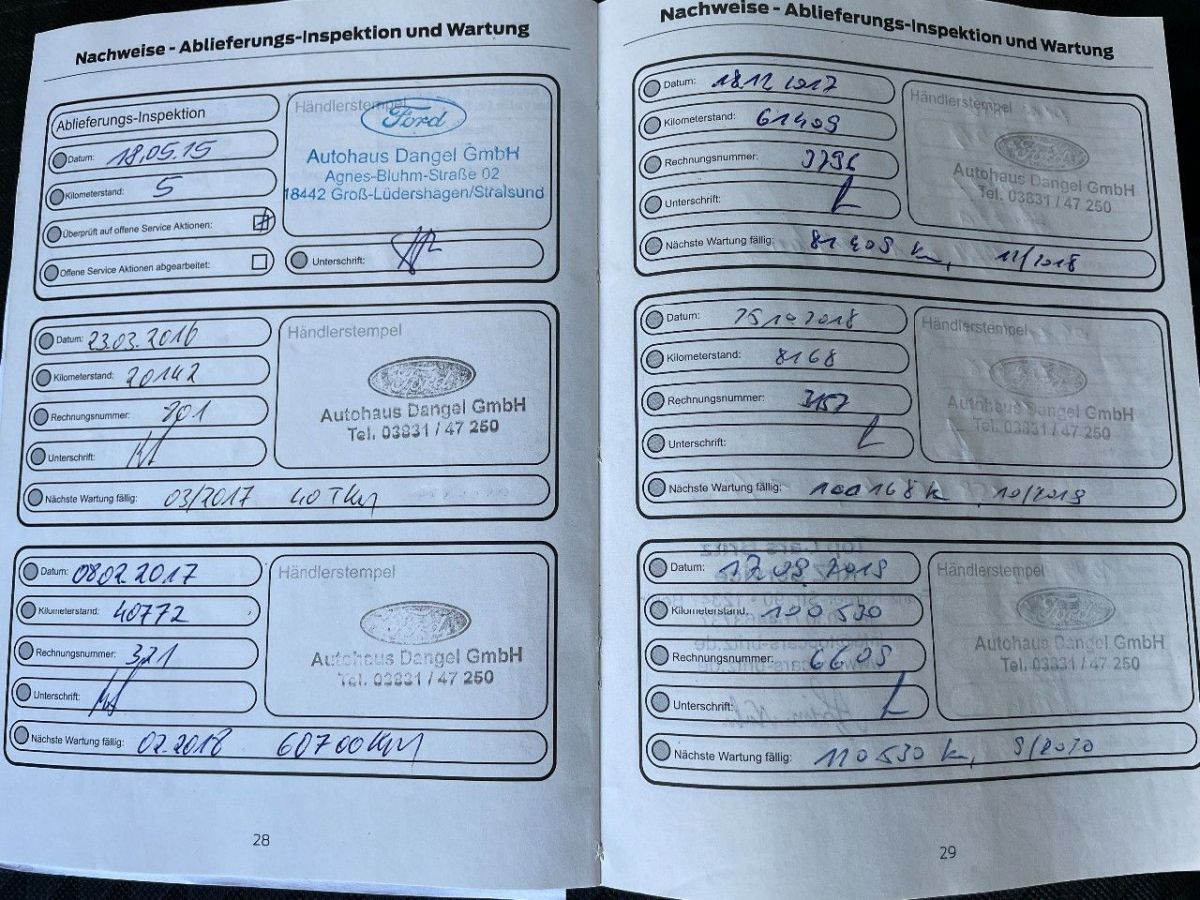 Nachweise - Ablieferungs-Inspektion und Wartung
Ablieferungs-Inspektion
Datum: 18.05.15
Kilometerstand: 5
Überprüft auf offene Service Aktionen:
Offene Service Aktionen abgearbeitet:
Händlerstempel
Ford
Autohaus Dangel GmbH
Agnes-Bluhm-Straße 02
18442 Groß-Lüdershagen/Stralsund
Unterschrift:
Datum: 23.03.2016
Kilometerstand: 20142
Rechnungsnummer: 801
Unterschrift:
Händlerstempel
Ford
Autohaus Dangel GmbH
Tel. 03831 / 47 250
Nächste Wartung fällig: 03/2017 40 TKm
Datum: 08.02.2017
Kilometerstand: 40772
Rechnungsnummer: 321
Unterschrift:
Händlerstempel
Ford
Autohaus Dangel GmbH
Tel. 03831 / 47 250
Nächste Wartung fällig: 02.2018 60700 Km
28
Nachweise - Ablieferungs-Inspektion und Wartung
Datum: 18.12.2017
Kilometerstand: 61409
Rechnungsnummer: 3796
Unterschrift:
Händlerstempel
Ford
Autohaus Dangel GmbH
Tel. 03831 / 47 250
Nächste Wartung fällig: 81409 km, 12/2018
Datum: 25.10.2018
Kilometerstand: 8168
Rechnungsnummer: 3157
Unterschrift:
Händlerstempel
Ford
Autohaus Dangel GmbH
Tel. 03831 / 47 250
Nächste Wartung fällig: 100168 k 10/2019
Datum: 17.09.2019
Kilometerstand: 100530
Rechnungsnummer: 6609
Unterschrift:
Händlerstempel
Ford
Autohaus Dangel GmbH
Tel. 03831 / 47 250
Nächste Wartung fällig: 110530 km, 9/2020
29